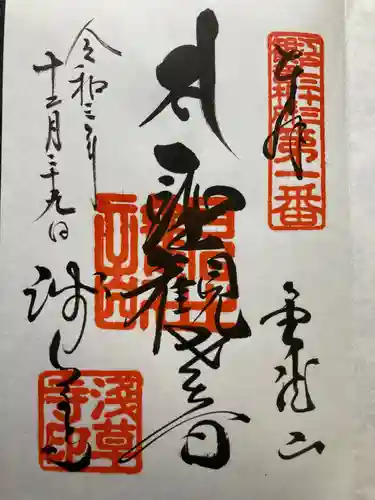 奉拝
第一番
金龍山
聖観世音
令和三年
十二月二十九日
浅草寺
淺草寺印